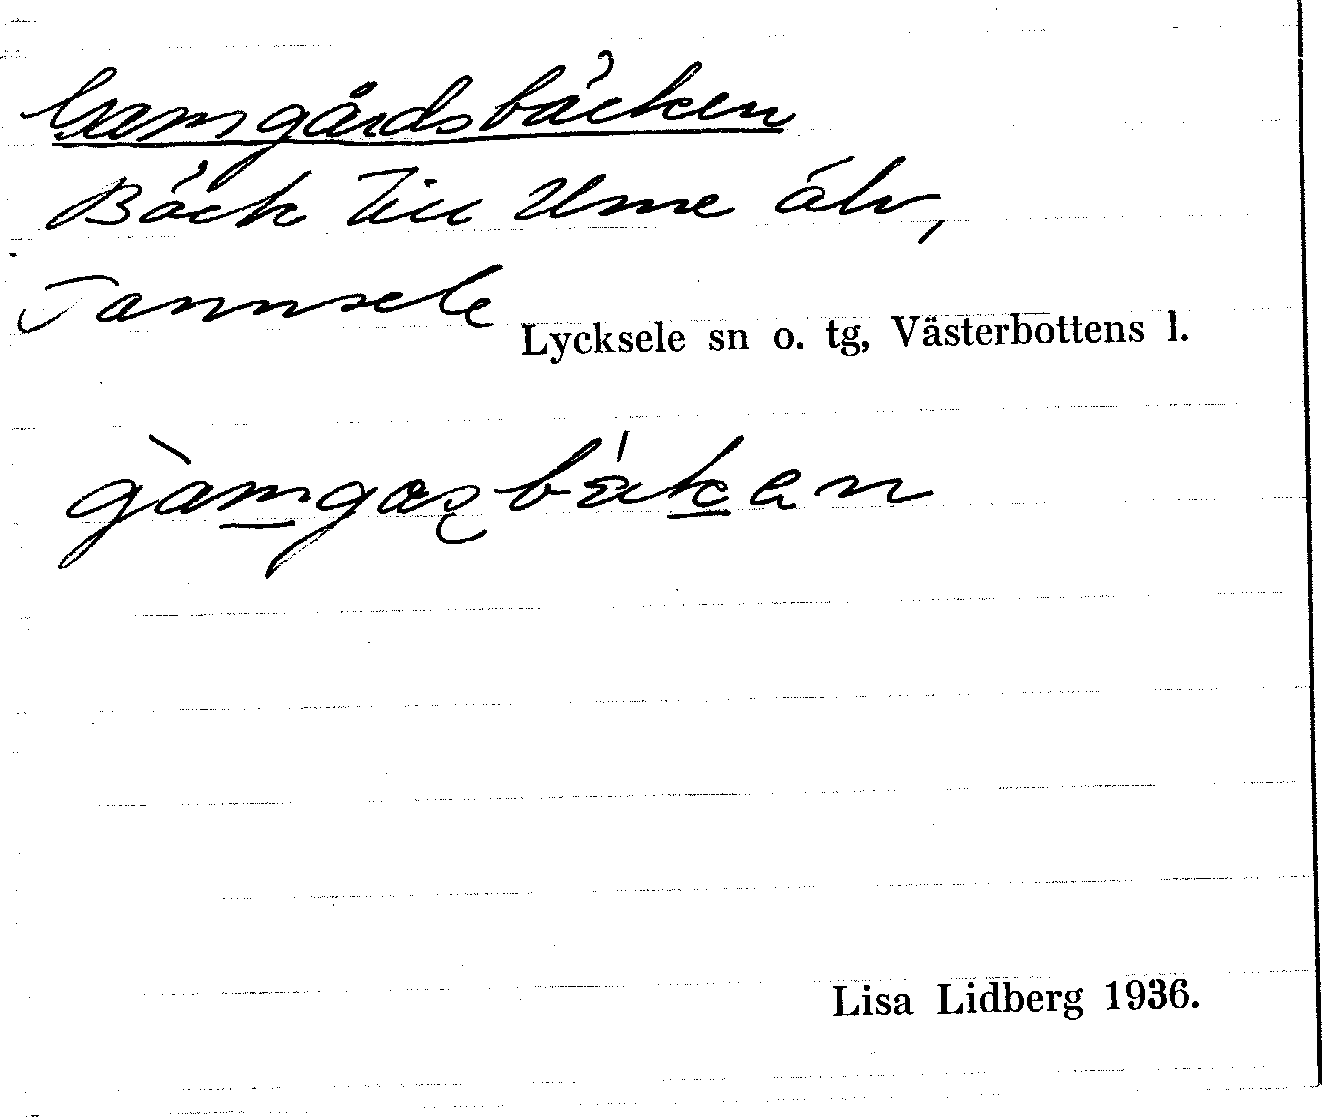 Gamgårdsbäcken
Bäck till Ume älv,
Tannsele
Lycksele sn o. tg, Västerbottens l.
Lisa Lidberg 1936.